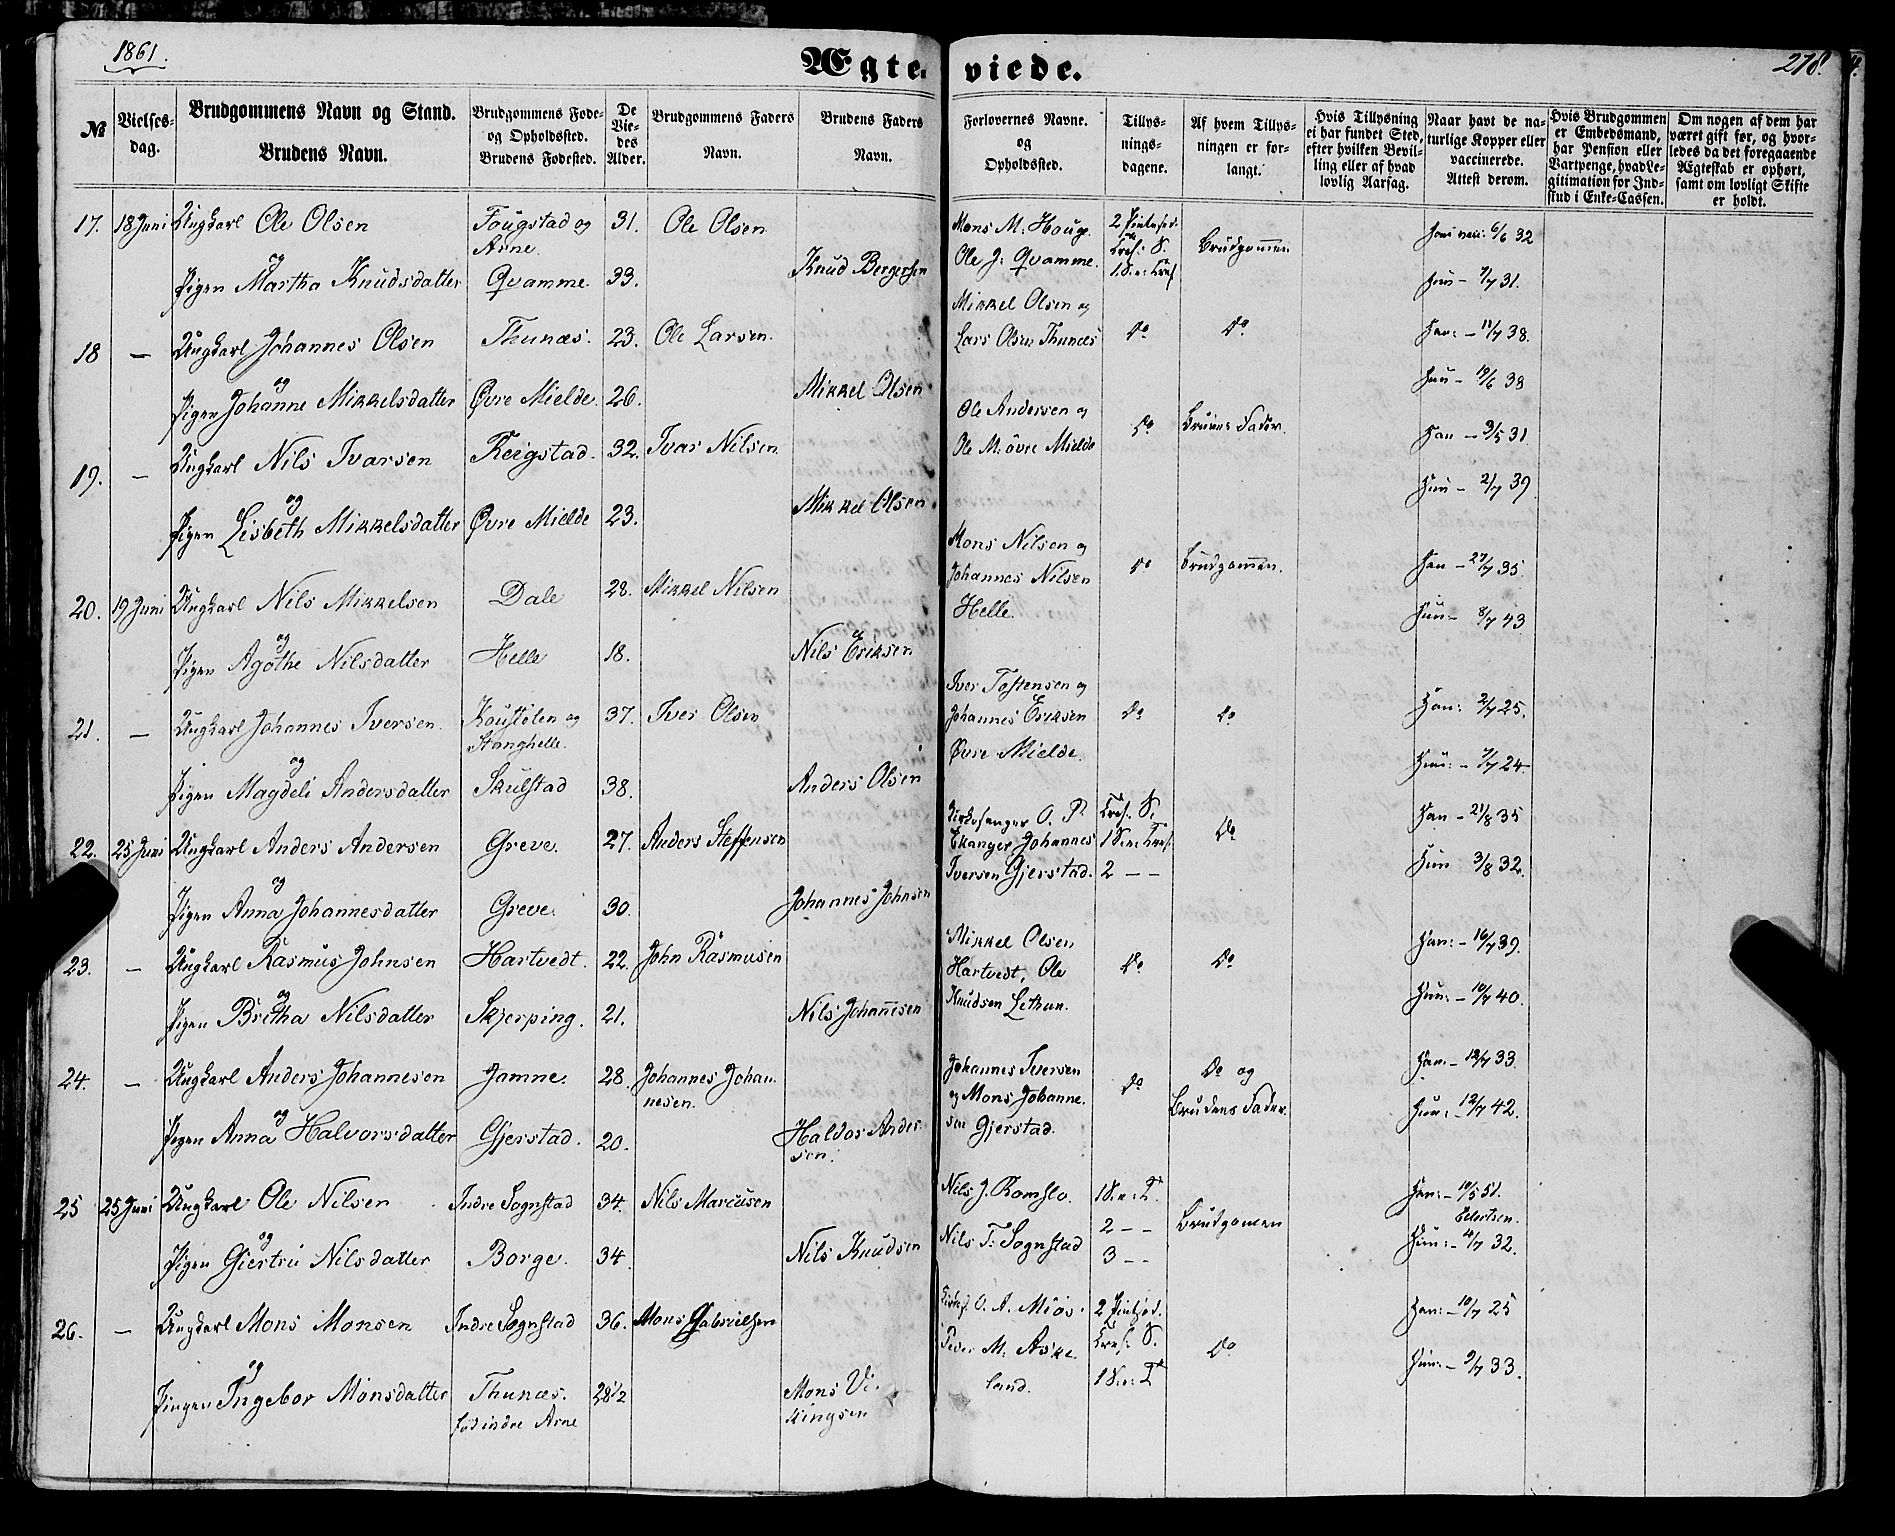 1861.
Ægte-viede.
278.
№
Vielses-dag.
Brudgommens Navn og Stand.
Brudens Navn.
Brudgommens Føde- og Opholdssted.
Brudens Fødested.
De Vie-des Alder.
Brudgommens Faders Navn.
Brudens Faders Navn.
Forlovernes Navne og Opholdssted.
Tillys-nings-dagene.
Af hvem Tillys-ningen er for-langt.
Hvis Tillysning ei har fundet Sted, efter hvilken Bevil-ling eller af hvad lovlig Aarsag.
Naar havt de na-turlige Kopper eller vaccinerede. Attest derom.
Hvis Brudgommen er Embedsmand, har Pension eller Vartpenge, hvad Le-gitimation for Ind-skud i Enke-Cassen.
Om nogen af dem har været gift før, og hvor-ledes da det foregaaende Ægteskab er ophørt, samt om lovligt Skifte er holdt.
17. 18 Juni Ungkarl Ole Olsen Fougstad og Arne. 31. Ole Olsen Mons M. Houge. Brudgommen 6/6 32
og
Pigen Martha Knudsdatter Qvamme 33. Knud Bergersen Ole J: Qvamme. Hun - 7/7 31.
18 — Ungkarl Johannes Olsen Thunæs. 23. Ole Larsen. Mikkel Olsen og Lars Olsen Thunæs Do Do Han: - 11/7 38.
og
Pigen Johanne Mikkelsdatter Øvre Mielde. 26. Mikkel Olsen Hun - 19/6 38
19. — Ungkarl Nils Ivarsen Reigstad. 32. Ivar Nilsen. Ole Andersen og Ole M: øvre Mielde Do Brudens Fader. Han - 9/5 31.
og
Pigen Lisbeth Mikkelsdatter Øvre Mielde 23. Mikkel Olsen Hun - 2/7 39
20. 19 Juni Ungkarl Nils Mikkelsen Dale 28. Mikkel Nilsen Mons Nilsen og Johannes Nilsen Helle. Do Brudgommen. Han - 27/7 35.
og
Pigen Agothe Nilsdatter Helle 18. Nils Eriksen Hun - 8/7 43
21. — Ungkarl Johannes Iversen Koustølen og Stanghelle. 37. Iver Olsen Iver Tostensen og Johannes Eriksen Øvre Mielde. Do Do Han: 2/7 25.
og
Pigen Magdeli Andersdatter Skulstad 38. Anders Olsen Hun: - 7/7 24
22. 25 Juni Ungkarl Anders Andersen Greve. 27. Anders Steffensen Kirkesanger O. P. Ekanger Johannes Iversen Gjerstad. 2 — — Do Han - 21/8 35
og
Pigen Anna Johannesdatter Greve. 30. Johannes Johnsen Hun 3/8 32.
23. — Ungkarl Rasmus Johnsen Hartvedt. 22. John Rasmusen Mikkel Olsen Hartvedt, Ole Knudsen Lethun. Do Do Han: - 16/7 39.
og
Pigen Bretha Nilsdatter Skjerping. 21. Nils Johannesen Hun: - 10/7 40.
24. — Ungkarl Anders Johannesen Jamne. 28. Johannes Johannesen. Johannes Iversen og Mons Johannesen Gjerstad. Do Do og Brudens Fader. Han - 12/7 33.
og
Pigen Anna Halvorsdatter Gjerstad. 20. Haldor Andersen. Hun: - 12/7 42.
25 25 Juni Ungkarl Ole Nilsen Indre Sognstad 34. Nils Marcusen Nils J. Romslo. 2 — — Brudgomen Han: - 10/5 51. Eilertsen.
og
Pigen Giertrü Nilsdatter Borge. 34. Nils Knudsen Nils T: Sognstad 3 — — Hun: - 4/7 32.
26. — Ungkarl Mons Monsen Indre Sognstad 36. Mons Gabrielsen O. A. Miøs. Do Han: - 10/7 25
og
Pingen Ingebor Monsdatter Thunæs. født indre Arne 28 1/2 Mons Vikingsen Peder M: Askeland. Hun: - 9/7 33.